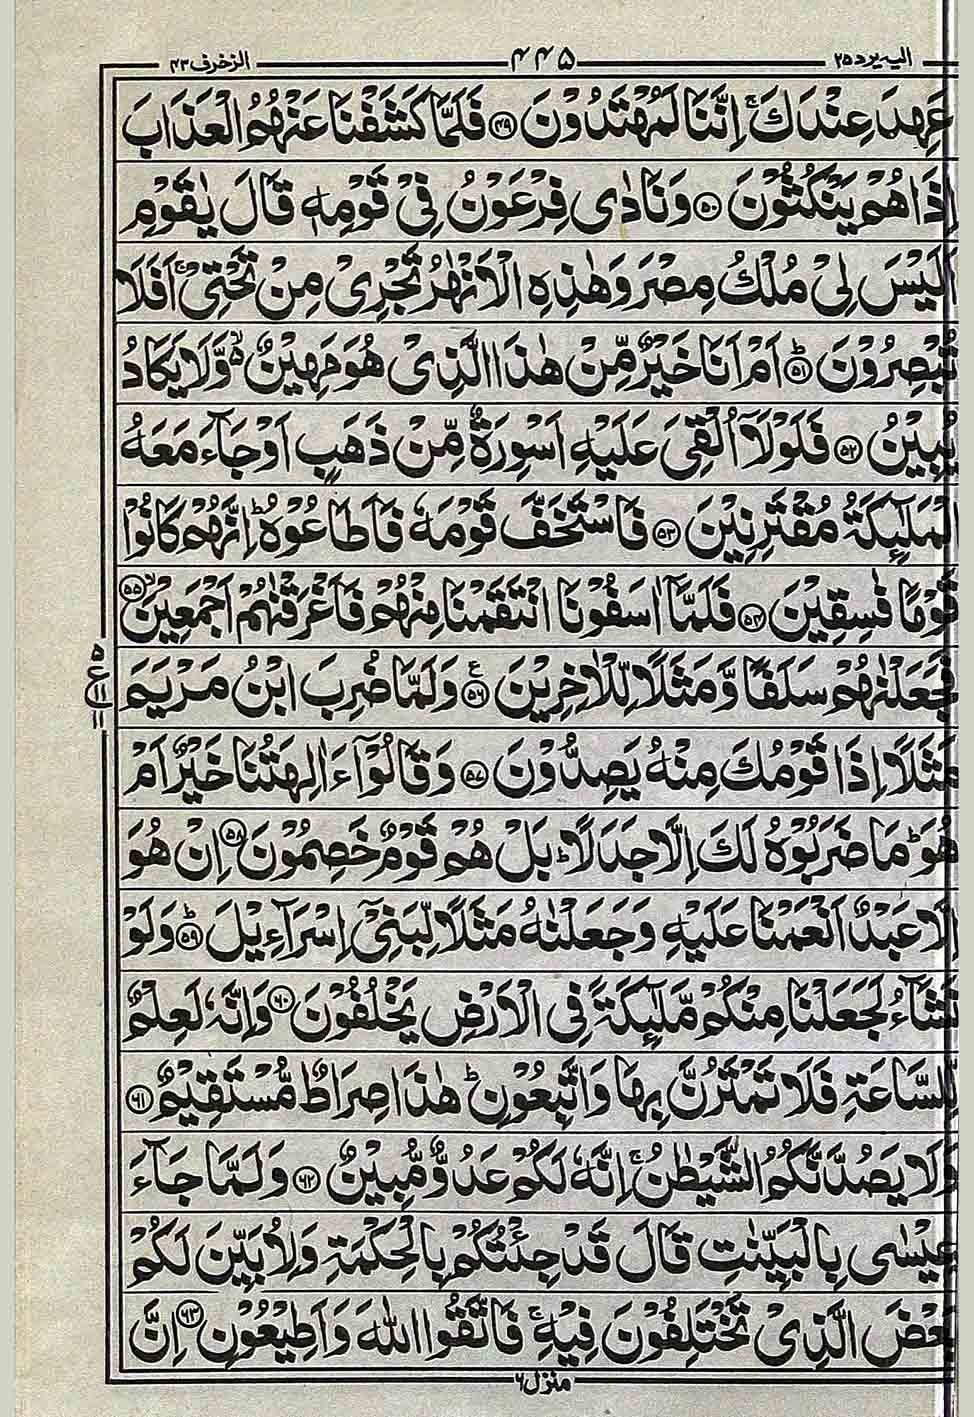 الیه یرد ۲۵
۴۴۵
الزخرف ۴۳
عَهِدَ عِنْدَكَ ۚ اِنَّنَا لَمُهْتَدُوْنَ ۴۹ فَلَمَّا كَشَفْنَا عَنْهُمُ الْعَذَابَ
اِذَا هُمْ يَنْكُثُوْنَ ۵۰ وَنَادٰى فِرْعَوْنُ فِىْ قَوْمِهٖ قَالَ يٰقَوْمِ
اَلَيْسَ لِىْ مُلْكُ مِصْرَ وَهٰذِهِ الْاَنْهٰرُ تَجْرِىْ مِنْ تَحْتِىْ ۚ اَفَلَا
تُبْصِرُوْنَ ؕ ۵۱ اَمْ اَنَا خَيْرٌ مِّنْ هٰذَا الَّذِىْ هُوَ مَهِيْنٌ ۙ۬ وَّلَا يَكَادُ
يُبِيْنُ ۵۲ فَلَوْلَاۤ اُلْقِىَ عَلَيْهِ اَسْوِرَةٌ مِّنْ ذَهَبٍ اَوْ جَآءَ مَعَهُ
الْمَلٰٓئِكَةُ مُقْتَرِنِيْنَ ۵۳ فَاسْتَخَفَّ قَوْمَهٗ فَاَطَاعُوْهُ ؕ اِنَّهُمْ كَانُوْا
قَوْمًا فٰسِقِيْنَ ۵۴ فَلَمَّاۤ اٰسَفُوْنَا انْتَقَمْنَا مِنْهُمْ فَاَغْرَقْنٰهُمْ اَجْمَعِيْنَ ۙ ۵۵
فَجَعَلْنٰهُمْ سَلَفًا وَّمَثَلًا لِّلْاٰخِرِيْنَ ۵۶ ع وَلَمَّا ضُرِبَ ابْنُ مَرْيَمَ
مَثَلًا اِذَا قَوْمُكَ مِنْهُ يَصِدُّوْنَ ۵۷ وَقَالُوْۤا ءَاٰلِهَتُنَا خَيْرٌ اَمْ
هُوَ ؕ مَا ضَرَبُوْهُ لَكَ اِلَّا جَدَلًا ؕ بَلْ هُمْ قَوْمٌ خَصِمُوْنَ ۵۸ اِنْ هُوَ
اِلَّا عَبْدٌ اَنْعَمْنَا عَلَيْهِ وَجَعَلْنٰهُ مَثَلًا لِّبَنِىْۤ اِسْرَآءِيْلَ ؕ ۵۹ وَلَوْ
نَشَآءُ لَجَعَلْنَا مِنْكُمْ مَّلٰٓئِكَةً فِى الْاَرْضِ يَخْلُفُوْنَ ۶۰ وَاِنَّهٗ لَعِلْمٌ
لِّلسَّاعَةِ فَلَا تَمْتَرُنَّ بِهَا وَاتَّبِعُوْنِ ؕ هٰذَا صِرَاطٌ مُّسْتَقِيْمٌ ۶۱
وَلَا يَصُدَّنَّكُمُ الشَّيْطٰنُ ۚ اِنَّهٗ لَكُمْ عَدُوٌّ مُّبِيْنٌ ۶۲ وَلَمَّا جَآءَ
عِيْسٰى بِالْبَيِّنٰتِ قَالَ قَدْ جِئْتُكُمْ بِالْحِكْمَةِ وَلِاُبَيِّنَ لَكُمْ
بَعْضَ الَّذِىْ تَخْتَلِفُوْنَ فِيْهِ ۚ فَاتَّقُوا اللّٰهَ وَاَطِيْعُوْنِ ۶۳ اِنَّ
منزل ۶
۵
ع ۱۱
۱۱